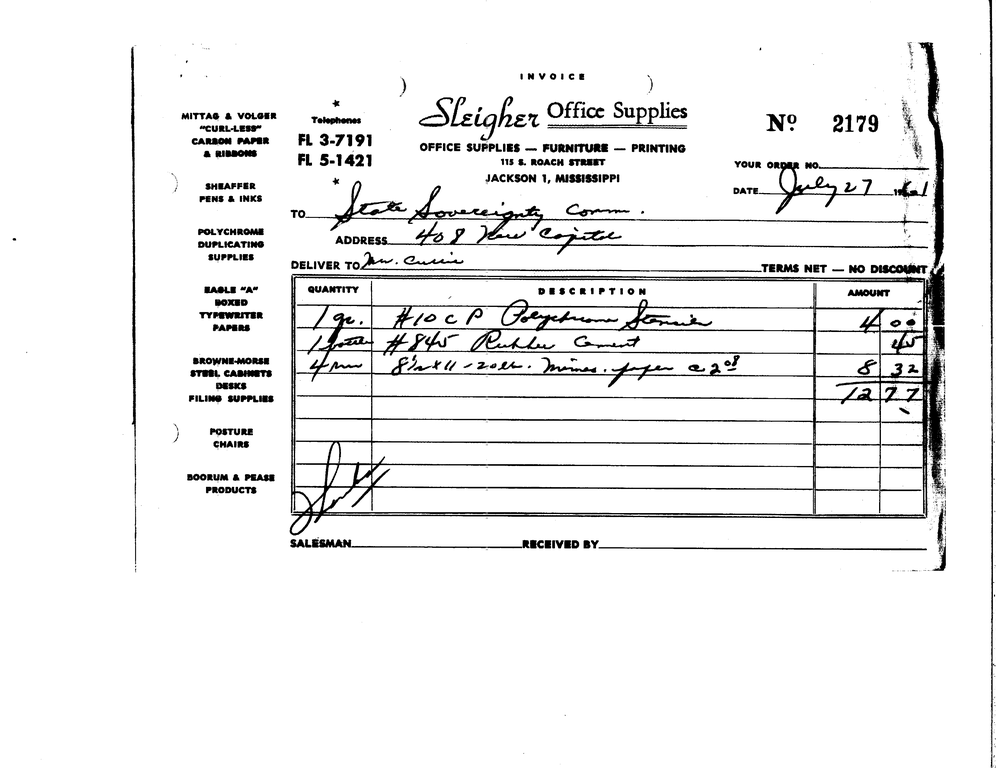 INVOICE
Sleigher Office Supplies
OFFICE SUPPLIES — FURNITURE — PRINTING
115 S. ROACH STREET
JACKSON 1, MISSISSIPPI
Telephones
FL 3-7191
FL 5-1421
Nº 2179
YOUR ORDER NO.
DATE July 27 1961
TO State Sovereignty Comm.
ADDRESS 408 New Capitol
DELIVER TO Mr. Currie
TERMS NET — NO DISCOUNT
MITTAG & VOLGER
"CURL-LESS"
CARBON PAPER
& RIBBONS
SHEAFFER
PENS & INKS
POLYCHROME
DUPLICATING
SUPPLIES
EAGLE "A"
BOXED
TYPEWRITER
PAPERS
BROWNE-MORSE
STEEL CABINETS
DESKS
FILING SUPPLIES
POSTURE
CHAIRS
BOORUM & PEASE
PRODUCTS
QUANTITY DESCRIPTION AMOUNT
1 qr. #10 C P Polychrome Stencils 4 00
1 bottle #845 Rubber Cement 45
4 rm 8½ x 11 - 20 lb. Mimeo. paper @ 2 08 8 32
12 77
SALESMAN RECEIVED BY